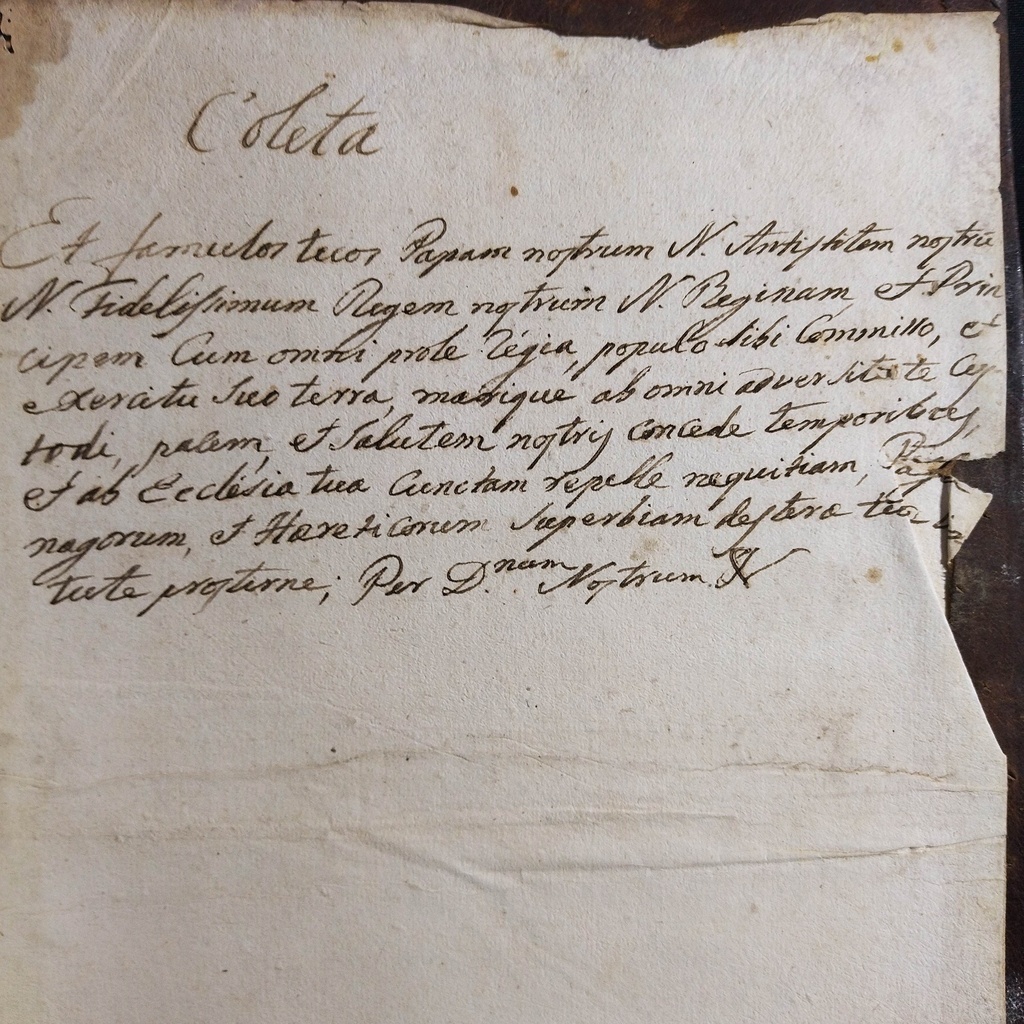 Coleta
Et famulos tuos Papam nostrum N. Antistitem nostrũ
N. Fidelissimum Regem nostrum N. Reginam, et Prin
cipem Cum omni prole Régia, populo sibi Commisso, et
exercitu suo terra, marique ab omni adversitate Cus
todi, pacem, et salutem nostris concede temporibus,
et ab Ecclésia tua Cunctam repelle nequitiam,
nagorum, et Hæreticorum superbiam dexteræ tuæ
tute prosterne; Per D.num Nostrum